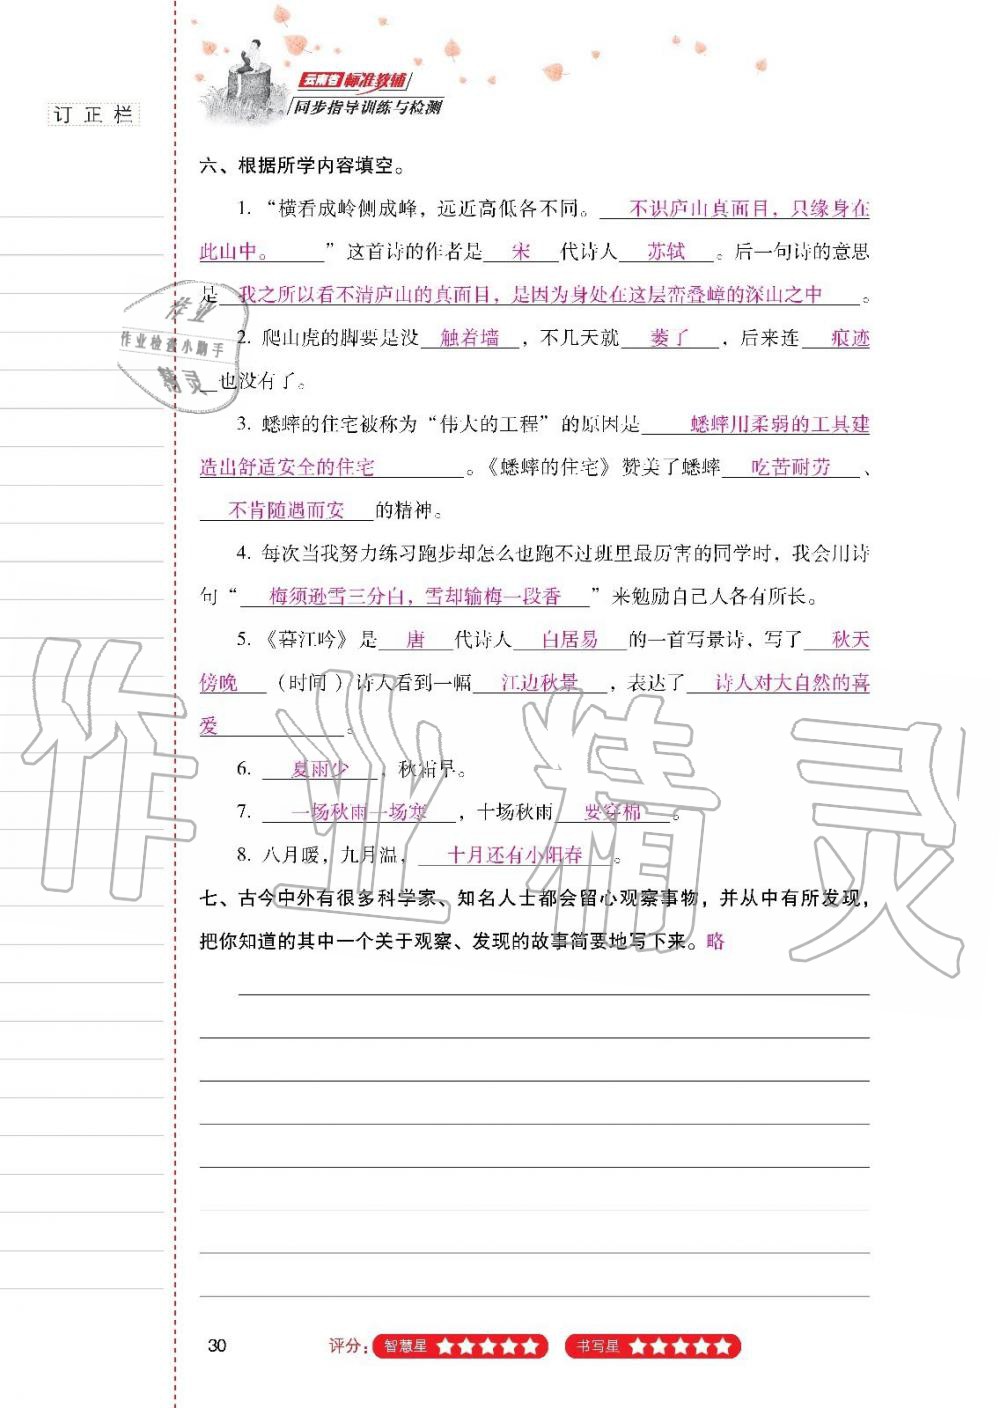 云南省 标准教辅
同步指导训练与检测
订正栏
六、根据所学内容填空。
1. “横看成岭侧成峰，远近高低各不同。 不识庐山真面目，只缘身在
此山中。 ”这首诗的作者是 宋 代诗人 苏轼 。后一句诗的意思
是 我之所以看不清庐山的真面目，是因为身处在这层峦叠嶂的深山之中 。
2. 爬山虎的脚要是没 触着墙 ，不几天就 萎了 ，后来连 痕迹
也没有了。
3. 蟋蟀的住宅被称为“伟大的工程”的原因是 蟋蟀用柔弱的工具建
造出舒适安全的住宅 。《蟋蟀的住宅》赞美了蟋蟀 吃苦耐劳 、
不肯随遇而安 的精神。
4. 每次当我努力练习跑步却怎么也跑不过班里最厉害的同学时，我会用诗
句“ 梅须逊雪三分白，雪却输梅一段香 ”来勉励自己人各有所长。
5. 《暮江吟》是 唐 代诗人 白居易 的一首写景诗，写了 秋天
傍晚 （时间）诗人看到一幅 江边秋景 ，表达了 诗人对大自然的喜
爱 。
6. 夏雨少 ，秋霜早。
7. 一场秋雨一场寒 ，十场秋雨 要穿棉 。
8. 八月暖，九月温， 十月还有小阳春 。
七、古今中外有很多科学家、知名人士都会留心观察事物，并从中有所发现，
把你知道的其中一个关于观察、发现的故事简要地写下来。略
30 评分： 智慧星 书写星
作业
作业检查小助手
精灵
作业精灵